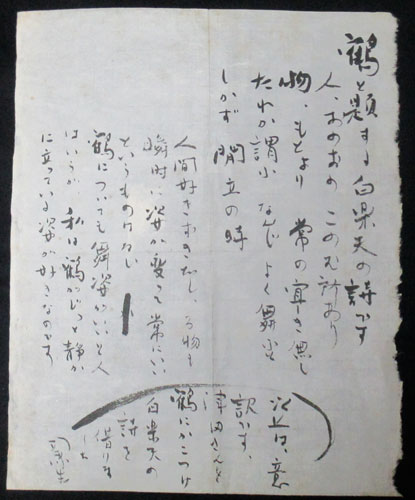 鶴と題する 白楽天の詩です
人、おのおの このむ所あり
物、もとより 常の宜き無し
たれか謂ふ なんじ よく舞ふと
しかず 閒立の時
人間好きずきだし、物も
瞬時に姿が変って常にいい
というものはない
鶴についても舞姿がいいと人
はいうが 私は鶴がじっと静か
に立っている姿が好きなのです
以上は、意
訳です。
津田さんを
鶴にかこつけ
白楽天の
詩を
借りま
した